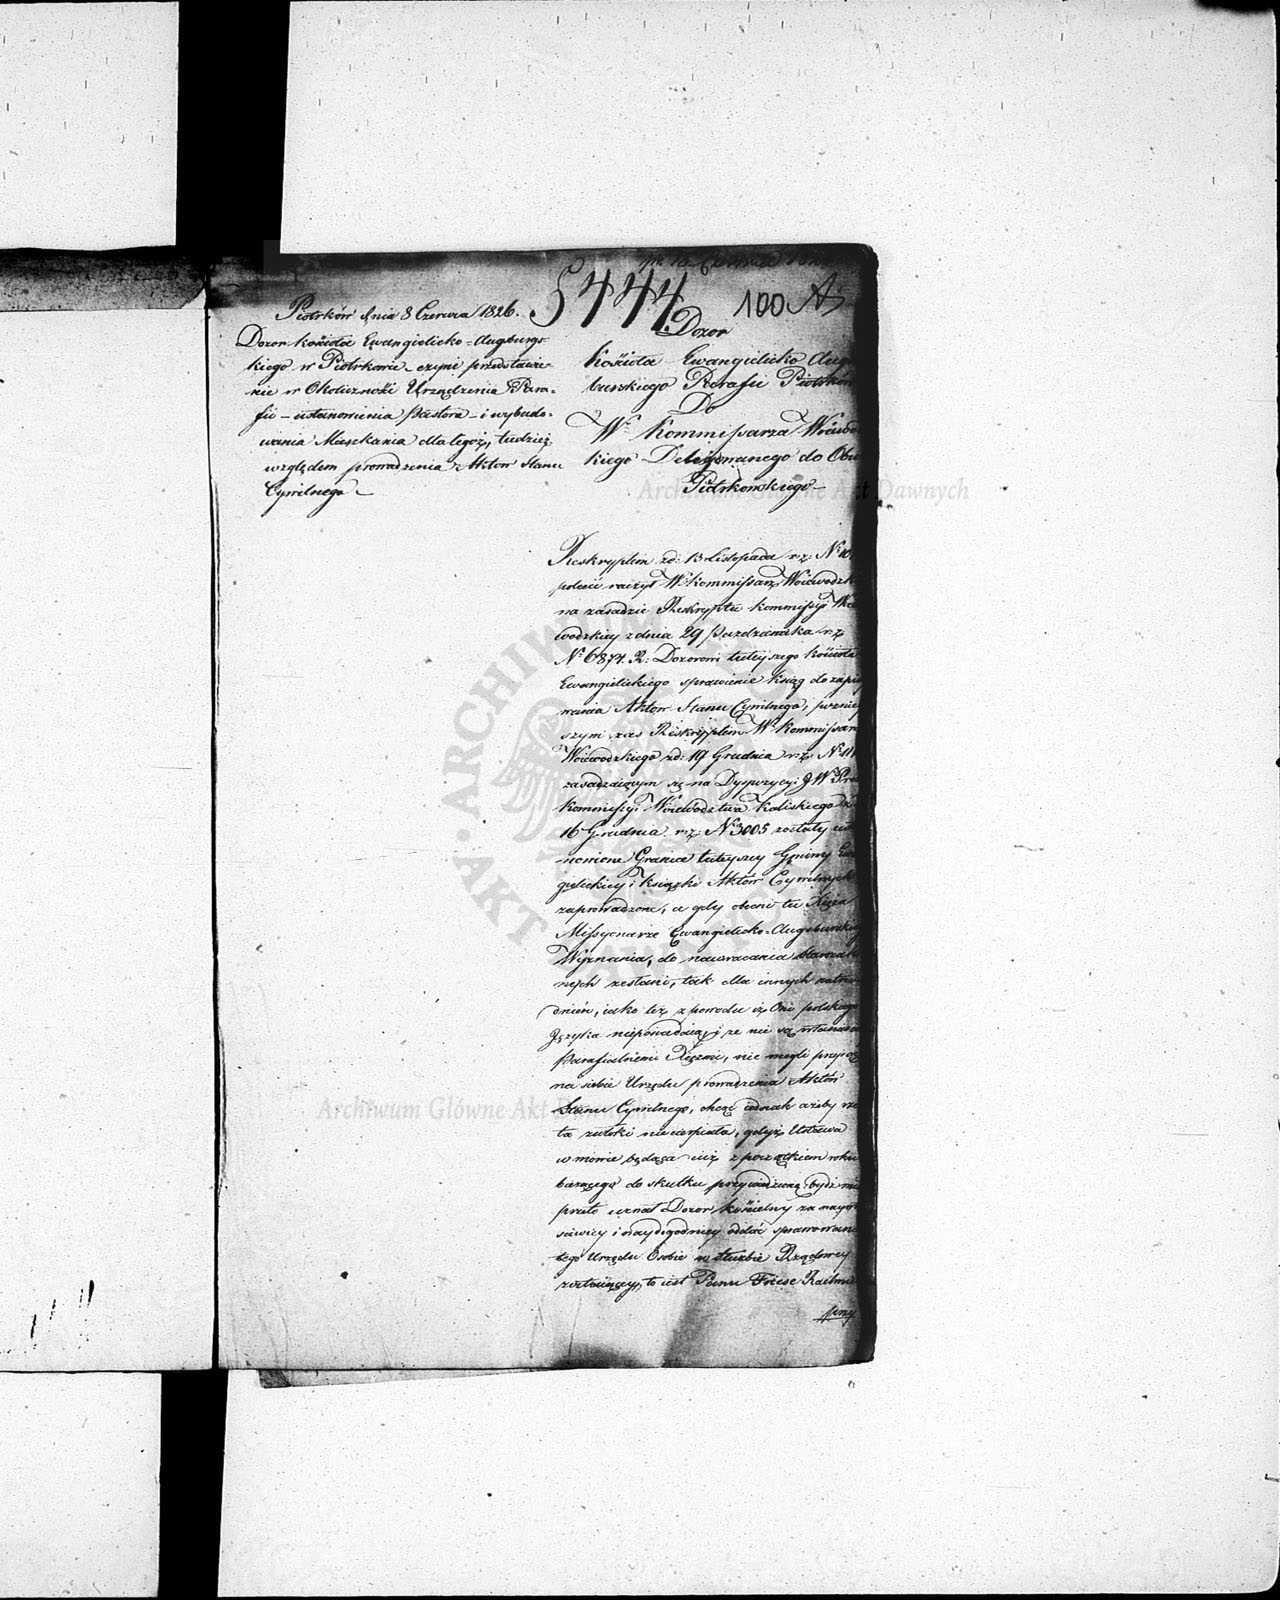 5444
100 A
Piotrków dnia 8 Czerwca 1826.
Dozor kościoła Ewangielicko-Augsburs-
kiego w Piotrkowie czyni przedstawie-
nie w Okoliczności Urządzenia Para-
fii – ustanowienia Pastora – i wybudo-
wania Mieszkania dla tegoż, tudzież
względem prowadzenia Aktow Stanu
Cywilnego –
Dozor
Kościoła Ewangielicko Aug
burskiego Parafii Piotrków
Do
W° Kommissarza Woiewódz
kiego Delegowanego do Obw
Piotrkowskiego –
Reskryptem zd: 13 Listopada r.z. N°
polecić raczył W° Kommissarz Woiewodzki
na zasadzie Reskryptu Kommissyi Woie
wodzkiey z dnia 29 Pazdziernika r.z.
N° 6874. R: Dozorowi tuteyszego kościoła
Ewangielickiego sprawienie ksiąg do zapisy
wania Aktow Stanu Cywilnego, pozniey
szym zas Reskryptem W° Kommissarza
Woiewodzkiego zd: 19 Grudnia r.z. N°
zasadzaiącym się na Dyspozycyi J W° Pre
Kommissyi Woiewodztwa Kaliskiego zd
16 Grudnia r.z. N° 3005 zostały
nowione Granice tuteyszey Gminy Ewan
gelickiey i książki Aktów Cywilnych
zaprowadzone, a gdy obecni tu Xięża
Missyonarze Ewangielicko-Augsburskiego
Wyznania, do nawracania Starozakon
nych zesłani, tak dla innych zatru
dnień, iako też z powodu iż Oni polskiego
Języka nieposiadaią, i że nie są własnemi
Parafialnemi Xiężmi, nie mogli przyiąć
na siebie Urzędu prowadzenia Aktów
Stanu Cywilnego, chcąc iednak ażeby rze
ta zwłoki niecierpiała, gdyż Ustawa
w mowie będąca iuż z początkiem roku
bieżącego do skutku przywiedzioną bydź mi
przeto uznał Dozor kościelny za nayw
ściwiey i naygodniey oddać sprawowanie
tego Urzędu Osobie w służbie Rządowey
zostaiącey, to iest Panu Friese Rachmi